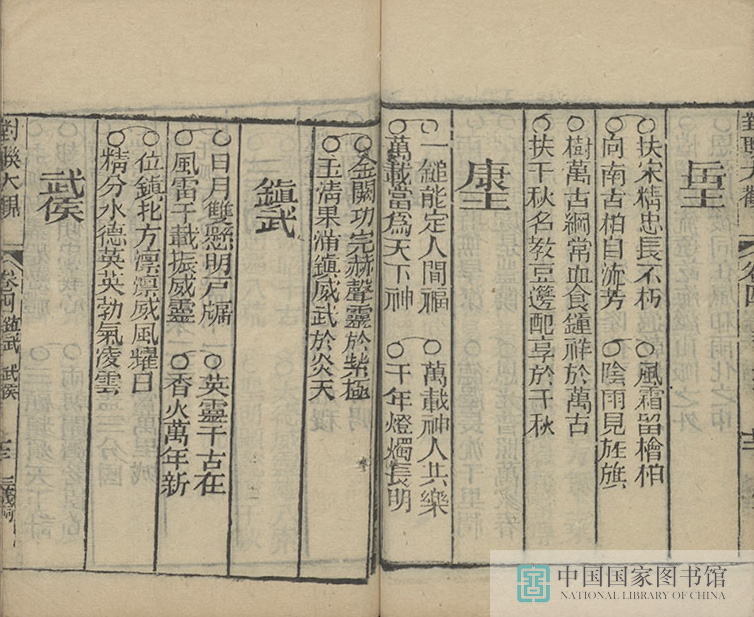 岳王
扶宋精忠長不朽 風霜留檜柏
向南古柏自流芳 陰雨見旌旗
樹萬古綱常血食鍾祥於萬古
扶千秋名教豆籩配享於千秋
康王
一鎚能定人間福 萬載神人共樂
萬載當爲天下神 千年燈燭長明
金闕功完赫聲靈於紫極
玉清果滿鎮威武於炎天
鎮武
日月雙懸明戸牖 英靈千古在
風雷千載振威靈 香火萬年新
位鎮北方凛凛威風耀日
精分水德英英勃氣凌雲
武侯
對聯大觀 卷四 鎮武 武侯
中国国家图书馆
NATIONAL LIBRARY OF CHINA